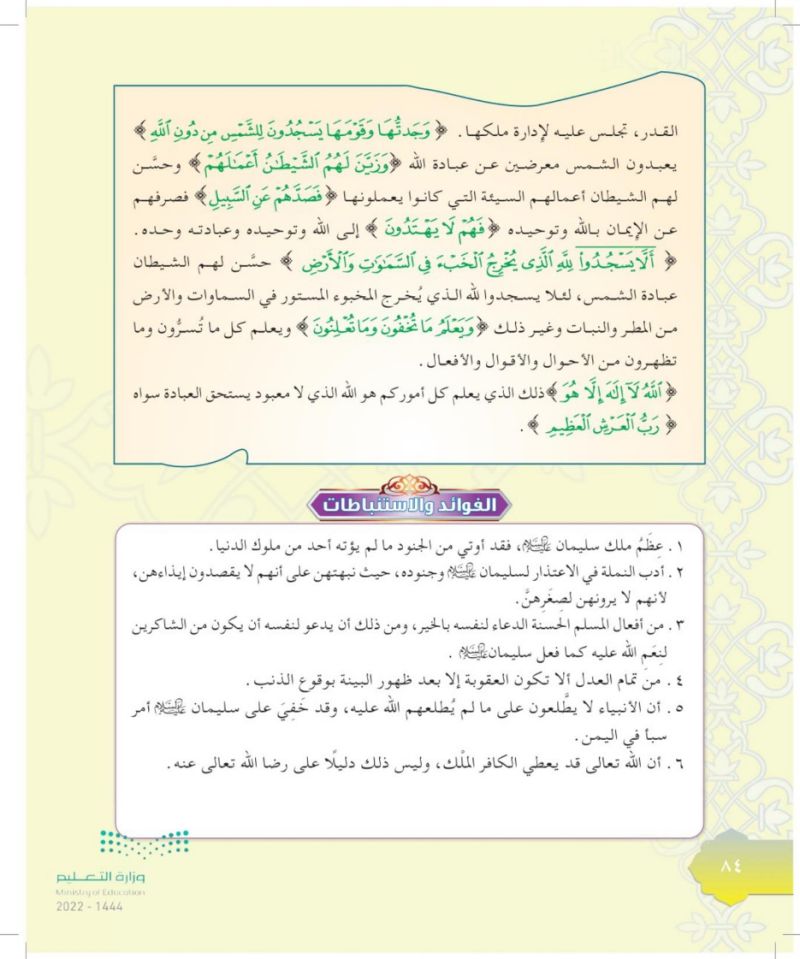 القدر، تجلس عليه لإدارة ملكها. ﴿ وَجَدتُّهَا وَقَوْمَهَا يَسْجُدُونَ لِلشَّمْسِ مِن دُونِ ٱللَّهِ ﴾
يعبدون الشمس معرضين عن عبادة الله ﴿وَزَيَّنَ لَهُمُ ٱلشَّيْطَٰنُ أَعْمَٰلَهُمْ ﴾ وحسَّن
لهم الشيطان أعمالهم السيئة التي كانوا يعملونها ﴿فَصَدَّهُمْ عَنِ ٱلسَّبِيلِ﴾ فصرفهم
عن الإيمان بالله وتوحيده ﴿فَهُمْ لَا يَهْتَدُونَ ﴾ إلى الله وتوحيده وعبادته وحده.
﴿ أَلَّا يَسْجُدُوا۟ لِلَّهِ ٱلَّذِى يُخْرِجُ ٱلْخَبْءَ فِى ٱلسَّمَٰوَٰتِ وَٱلْأَرْضِ ﴾ حسَّن لهم الشيطان
عبادة الشمس، لئلا يسجدوا لله الذي يُخرج المخبوء المستور في السماوات والأرض
من المطر والنبات وغير ذلك ﴿وَيَعْلَمُ مَا تُخْفُونَ وَمَا تُعْلِنُونَ﴾ ويعلم كل ما تُسرُّون وما
تظهرون من الأحوال والأقوال والأفعال.
﴿ٱللَّهُ لَآ إِلَٰهَ إِلَّا هُوَ ﴾ذلك الذي يعلم كل أموركم هو الله الذي لا معبود يستحق العبادة سواه
﴿ رَبُّ ٱلْعَرْشِ ٱلْعَظِيمِ ﴾.
الفوائد والاستنباطات
١. عِظَمُ ملك سليمان عليه السلام، فقد أوتي من الجنود ما لم يؤته أحد من ملوك الدنيا.
٢. أدب النملة في الاعتذار لسليمان عليه السلام وجنوده، حيث نبهتهن على أنهم لا يقصدون إيذاءهن،
لأنهم لا يرونهن لصِغَرِهنَّ.
٣. من أفعال المسلم الحسنة الدعاء لنفسه بالخير، ومن ذلك أن يدعو لنفسه أن يكون من الشاكرين
لنِعَمِ الله عليه كما فعل سليمان عليه السلام.
٤. من تمام العدل ألا تكون العقوبة إلا بعد ظهور البينة بوقوع الذنب.
٥. أن الأنبياء لا يطَّلعون على ما لم يُطلعهم الله عليه، وقد خَفِيَ على سليمان عليه السلام أمر
سبأ في اليمن.
٦. أن الله تعالى قد يعطي الكافر المُلك، وليس ذلك دليلًا على رضا الله تعالى عنه.
وزارة التعليم
Ministry of Education
2022 - 1444
٨٤